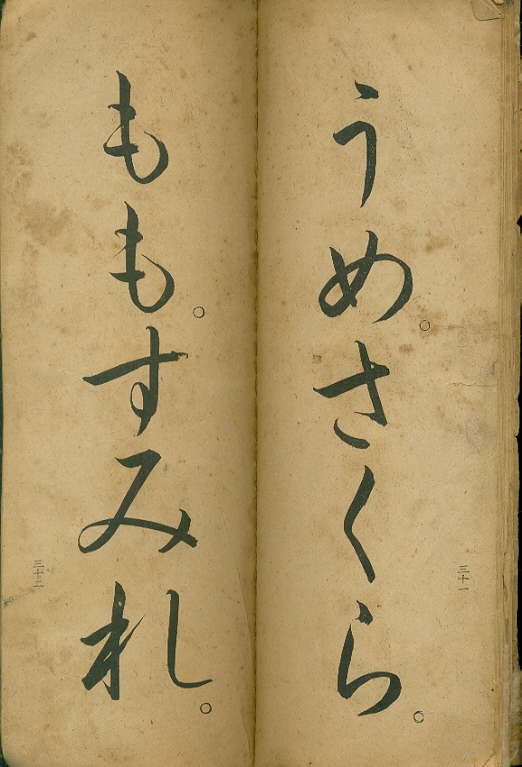 うめ。さくら。
三十一
もも。すみれ。
三十二